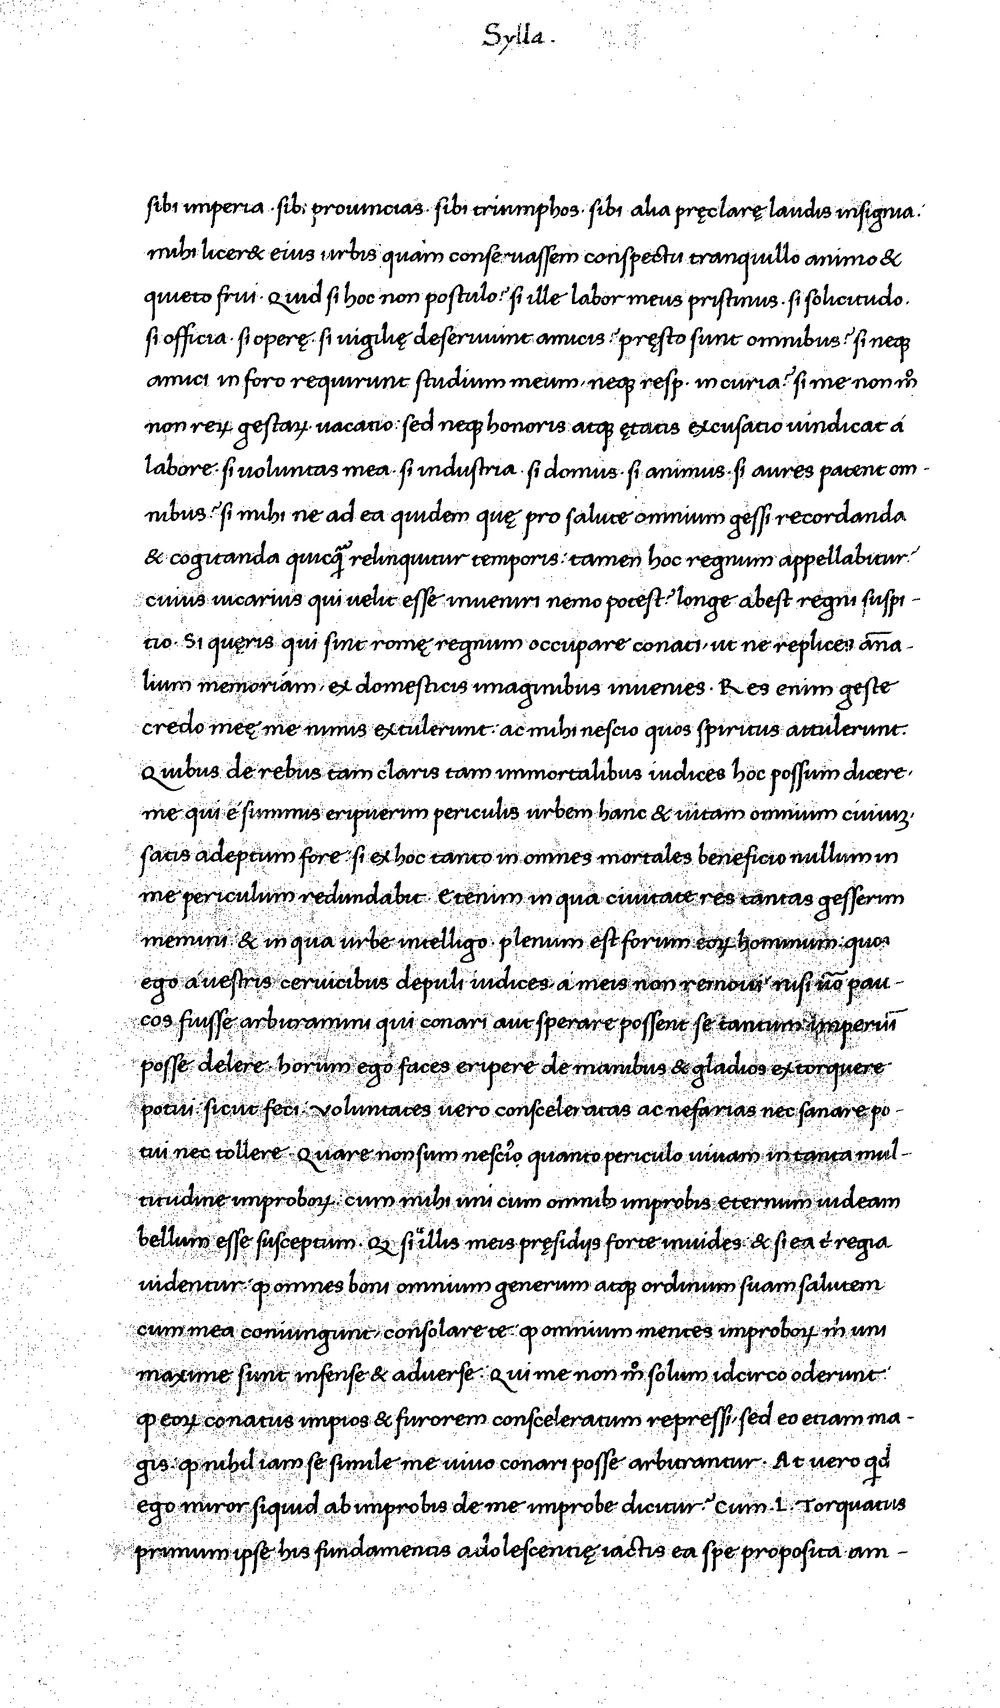 Sylla.
sibi imperia. sibi prouincias. sibi triumphos. sibi alia pręclarę laudis insignia:
mihi licer& eius urbis quam conseruassem conspectu tranquillo animo &
quieto frui. Quid si hoc non postulo? si ille labor meus pristinus. si solicitudo.
si officia. si operę. si uigilię deseruiunt amicis? pręsto sunt omnibus? si neqꝫ
amici in foro requirunt studium meum, neqꝫ resp. in curia? si me non m̊
non reꝝ gestaꝝ uacatio: sed neqꝫ honoris atqꝫ ętatis excusatio uindicat á
labore. si uoluntas mea. si industria. si domus. si animus. si aures patent om-
nibus? si mihi ne ad ea quidem quę pro salute omnium gessi recordanda
& cogitanda quicq̃ relinquitur temporis: tamen hoc regnum appellabitur?
cuius uicarius qui uelit esse inueniri nemo potest? longe abest regni suspi-
tio. Si quęris qui sint romę regnum occupare conati, ut ne replices an̄a-
lium memoriam, ex domesticis imaginibus inuenies. Res enim geste
credo meę me nimis extulerunt. ac mihi nescio quos spiritus attulerunt.
Quibus de rebus tam claris tam immortalibus iudices hoc possum dicere,
me qui é summis eripuerim periculis urbem hanc & uitam omnium ciuiuꝫ,
satis adeptum fore: si ex hoc tanto in omnes mortales beneficio nullum in
me periculum redundabit. Etenim in qua ciuitate res tantas gesserim
memini. & in qua urbe intelligo. plenum est forum eoꝝ hominum: quos
ego a uestris ceruicibus depuli iudices. a meis non remoui. nisi uo᷃ pau-
cos fuisse arbitramini qui conari aut sperare possent se tantum imperiū
posse delere. horum ego faces eripere de manibus & gladios extorquere
potui. sicut feci. Voluntates uero consceleratas ac nefarias nec sanare po-
tui nec tollere. Quare non sum nescỉo. quanto periculo uiuam in tanta mul-
titudine improboꝝ. cum mihi uni cum omnibꝫ improbis eternum uideam
bellum esse susceptum. Qꝫ si illis meis pręsidijs forte inuides. & si ea t̉ regia
uidentur: ꝙ omnes boni omnium generum atqꝫ ordinum suam salutem
cum mea coniungunt, consolare te: ꝙ omnium mentes improboꝝ m̉ uni
maxime sunt infense & aduerse. Qui me non m̊ solum idcirco oderunt:
ꝙ eoꝝ conatus impios & furorem consceleratum repressi, sed eo etiam ma-
gis. ꝙ nihil iam se simile me uiuo conari posse arbitrantur. At uero qd̉
ego miror siquid ab improbis de me improbe dicitur? Cum .L. Torquatus
primum ipse his fundamentis adolescentię iactis ea spe proposita am-